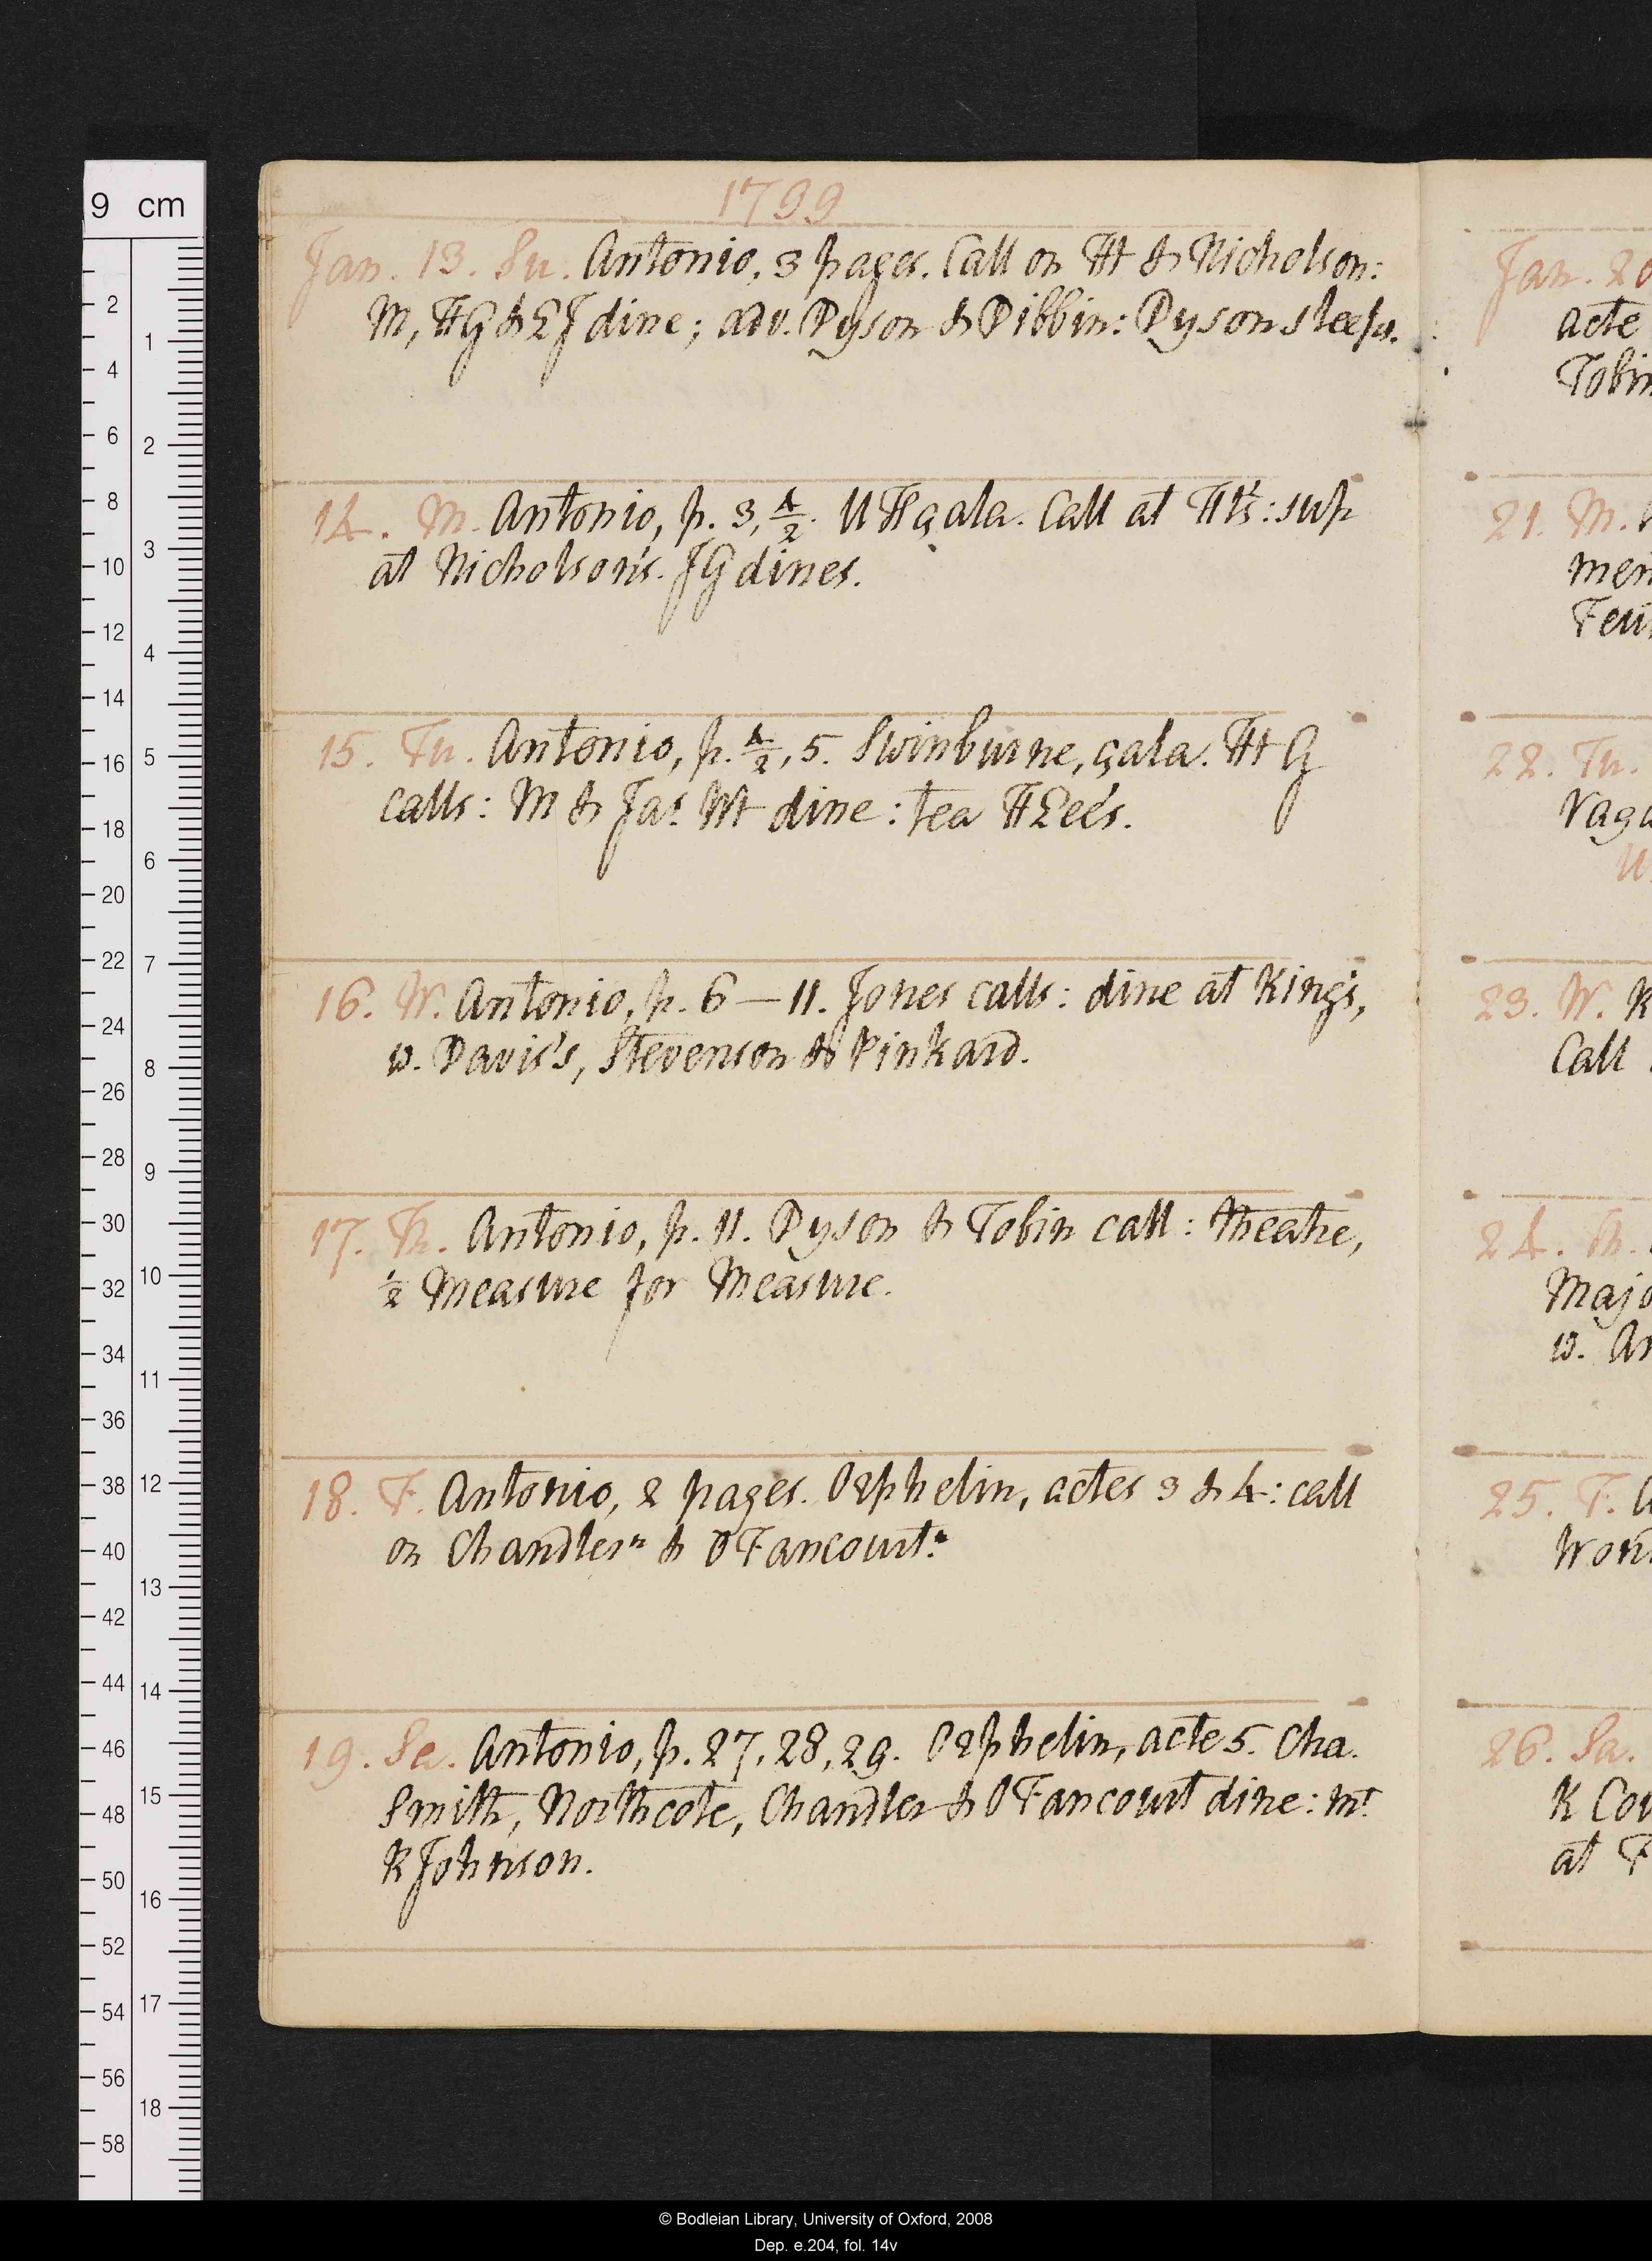 1799
Jan. 13. Su. Antonio, 3 pages. Call on Ht & Nicholson:
M, HG & LJ dine; adv. Dyson & Dibbin: Dyson sleeps.
14. M. Antonio, p. 3, 4/2. UH gala. Call at Ht's: sup
at Nicholson's. JG dines.
15. Tu. Antonio, p. 4/2, 5. Swinburne, çala. Ht G
calls: M & Jas Mt dine: tea HLee's.
16. W. Antonio, p. 6 — 11. Jones calls: dine at King's,
w. Davis's, Stevenson & Pinkard.
17. Th. Antonio, p. 11. Dyson & Tobin call: theatre,
½ Measure for Measure.
18. F. Antonio, 2 pages. Orphelin, actes 3 & 4: call
on Chandler n & O Fancourt. n
19. Sa. Antonio, p. 27, 28, 29. Orphelin, acte 5. Cha.
Smith, Northcote, Chandler & O Fancourt dine: mt
K Johnson.
Jan. 20
acte
Tobin
21. M.
22. Tu.
23. W. K
Call
24. Th.
w.
25. F.
26. Sa.
at F
9 cm
2
4
6
8
10
12
14
16
18
20
22
24
26
28
30
32
34
36
38
40
42
44
46
48
50
52
54
56
58
1
2
3
4
5
6
7
8
9
10
11
12
13
14
15
16
17
18
© Bodleian Library, University of Oxford, 2008
Dep. e.204, fol. 14v